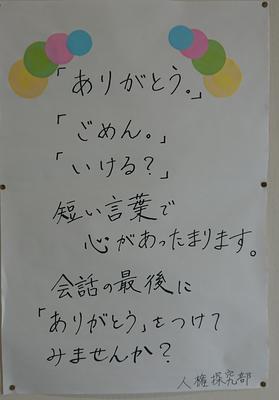 「ありがとう。」
「ごめん。」
「いける?」
短い言葉で
心があったまります。
会話の最後に
「ありがとう」をつけて
みませんか?
人権探究部